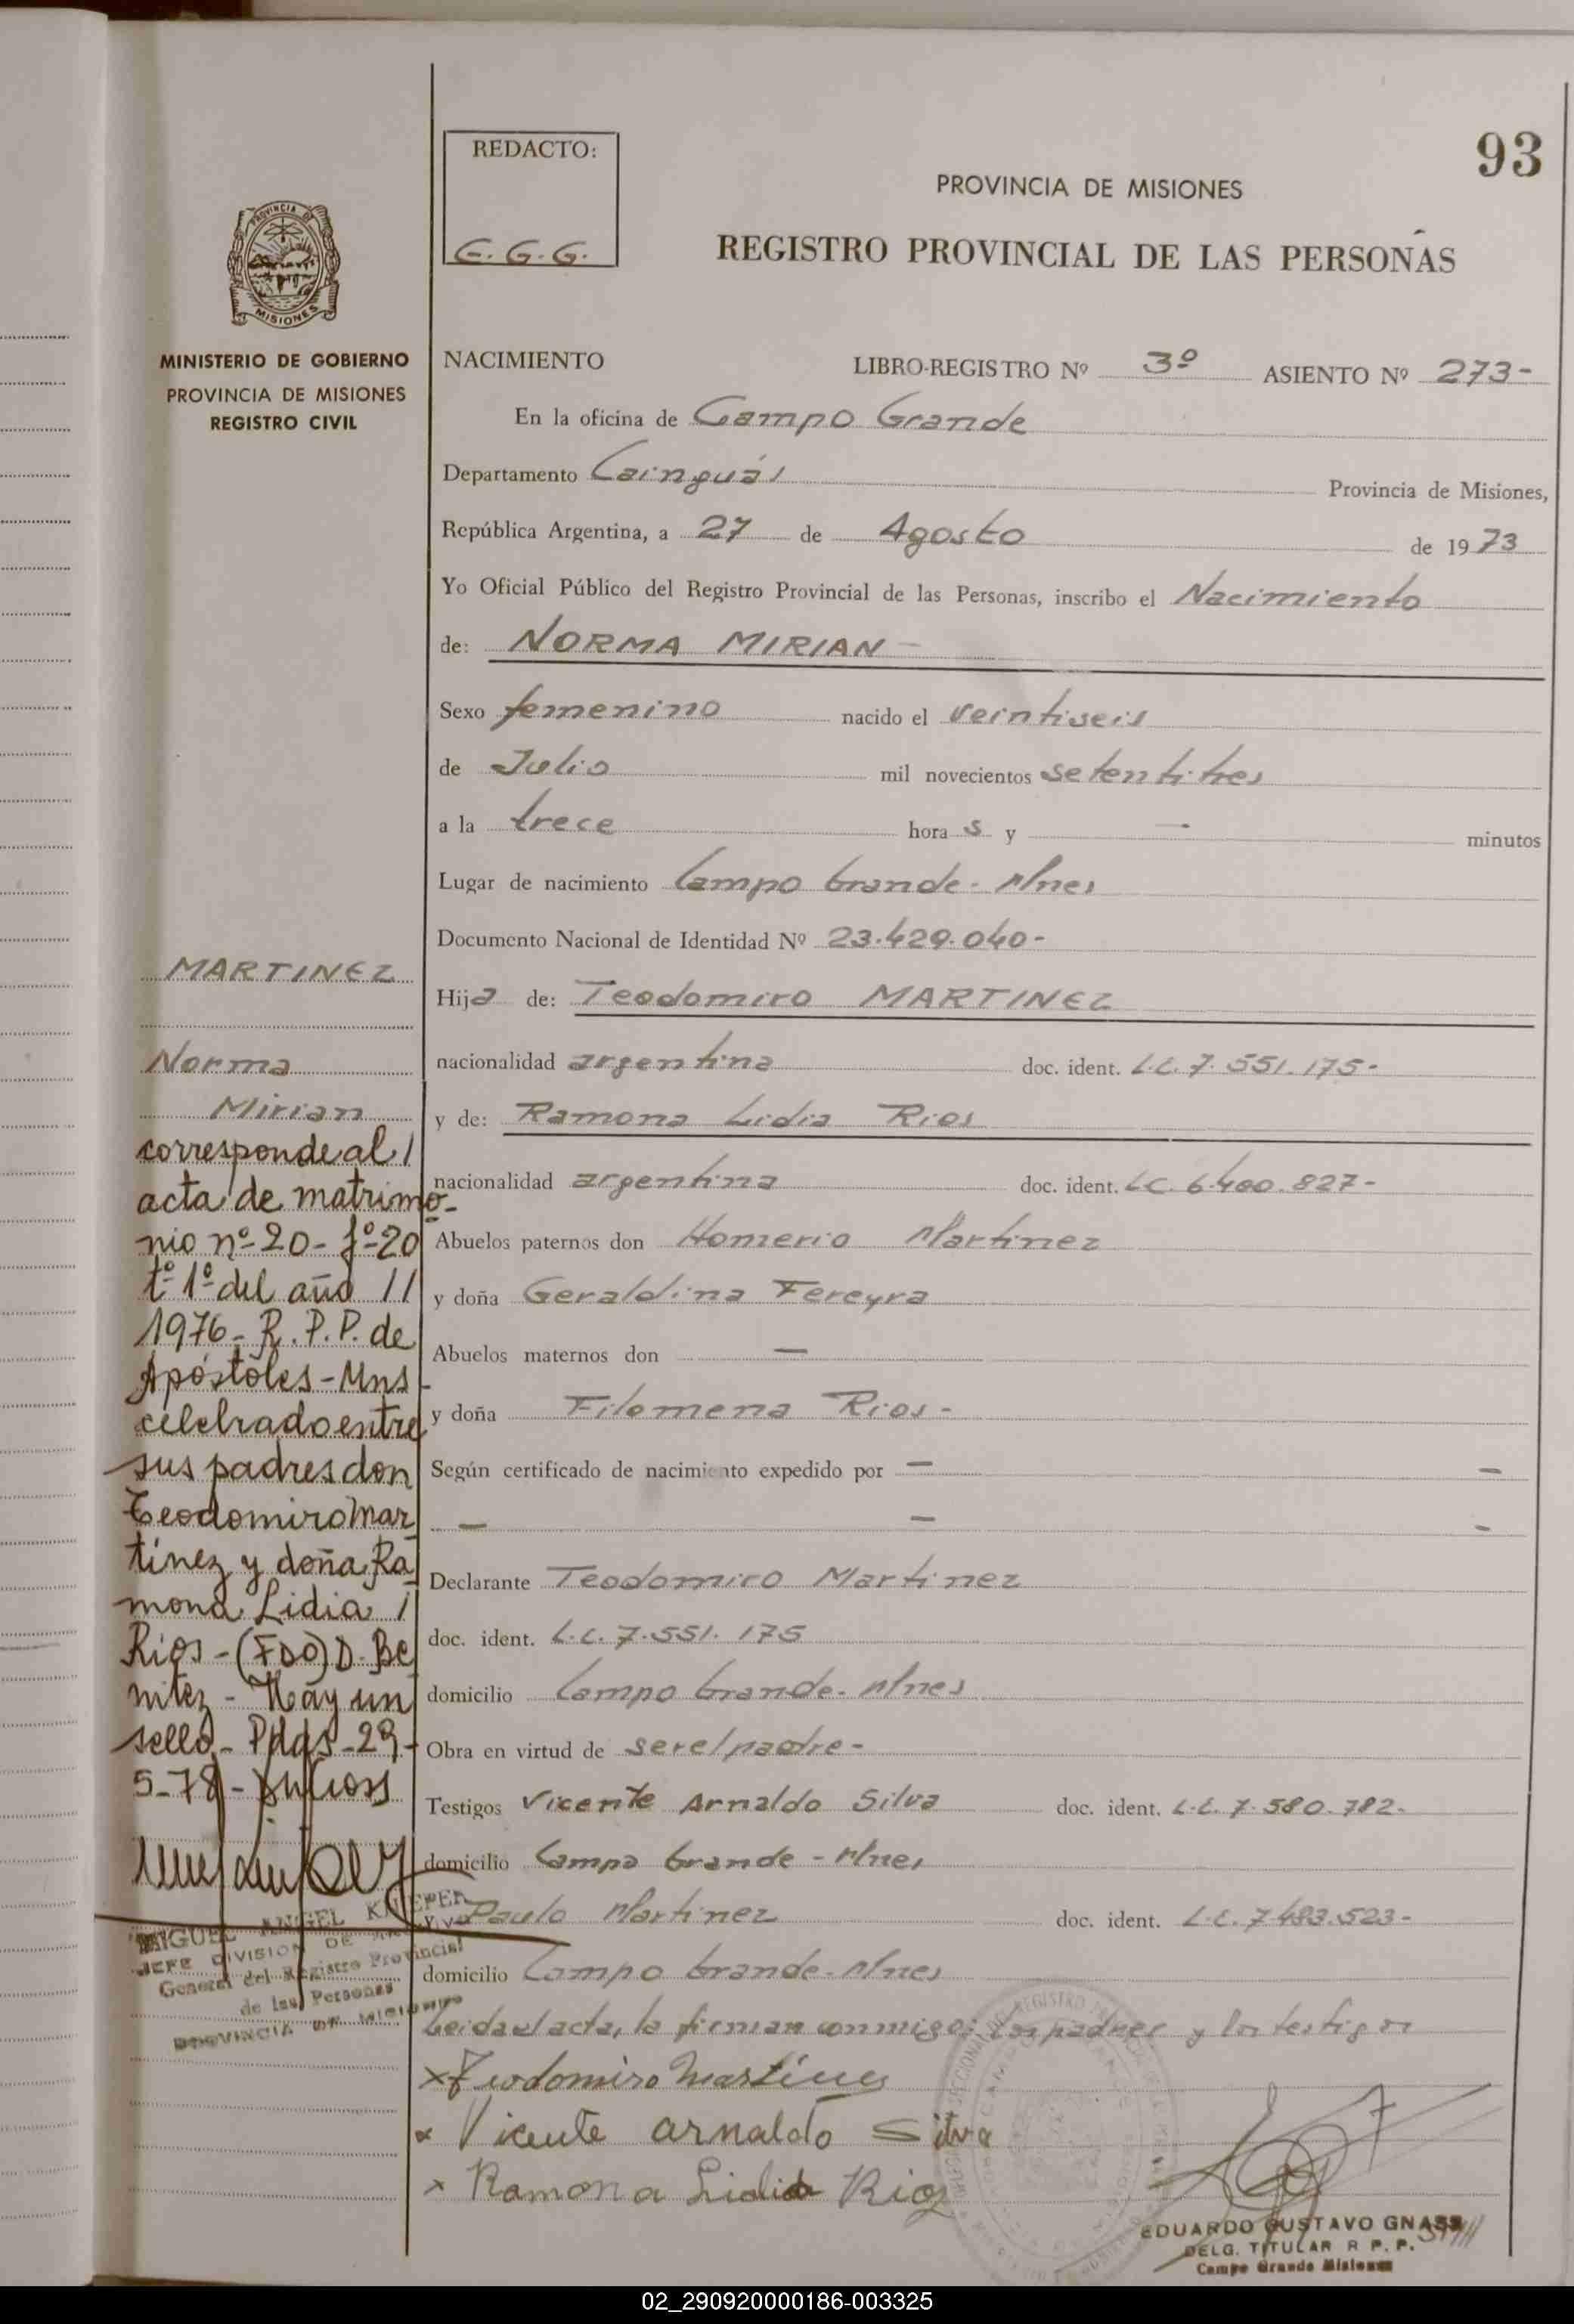 93
REDACTO:
G. G. G.
PROVINCIA DE MISIONES
REGISTRO PROVINCIAL DE LAS PERSONAS
PROVINCIA DE
MISIONES
MINISTERIO DE GOBIERNO
PROVINCIA DE MISIONES
REGISTRO CIVIL
NACIMIENTO LIBRO-REGISTRO Nº 3º ASIENTO Nº 273-
En la oficina de Campo Grande
Departamento Cainguás Provincia de Misiones,
República Argentina, a 27 de Agosto de 1973
Yo Oficial Público del Registro Provincial de las Personas, inscribo el Nacimiento
de: NORMA MIRIAN -
Sexo femenino nacido el veintiseis
de Julio mil novecientos setentitres
a la trece hora s y - minutos
Lugar de nacimiento Campo Grande - Mnes
Documento Nacional de Identidad Nº 23.429.040-
Hija de: Teodomiro MARTINEZ
nacionalidad argentina doc. ident. L.E. 7.551.175-
y de: Ramona Lidia Rios
nacionalidad argentina doc. ident. LC. 6.400.827-
Abuelos paternos don Homerio Martinez
y doña Geraldina Fereyra
Abuelos maternos don -
y doña Filomena Rios-
Según certificado de nacimiento expedido por - -
- - -
Declarante Teodomiro Martinez
doc. ident. L.E. 7.551.175
domicilio Campo Grande - Mnes
Obra en virtud de ser el padre-
Testigos Vicente Arnaldo Silva doc. ident. L.E. 7.580.782-
domicilio Campo Grande - Mnes
Paulo Martinez doc. ident. L.E. 7483.523-
domicilio Campo Grande - Mnes
Leida el acta, la firman conmigo: los padres y los testigos
x Teodomiro Martinez
x Vicente arnaldo Silva
x Ramona Lidia Rios
EDUARDO GUSTAVO GNASS
DELG. TITULAR R. P. P.
Campo Grande Misiones
MARTINEZ
Norma
Mirian
corresponde al /
acta de matrimo-
nio nº 20 - fº 20
tº 1º del año //
1976 - R. P. P. de
Apóstoles - Mns -
celebrado entre
sus padres don
Teodomiro Mar
tinez y doña Ra
mona Lidia /
Rios - (FDO) D. Be
nitez - Hay un
sello - Pdas - 29 -
5-78 -
MIGUEL ANGEL KNEPER
JEFE DIVISION DE
General del Registro Provincial
de las Personas
PROVINCIA DE MISIONES
02_290920000186-003325